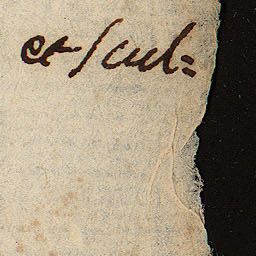 et ſcul=